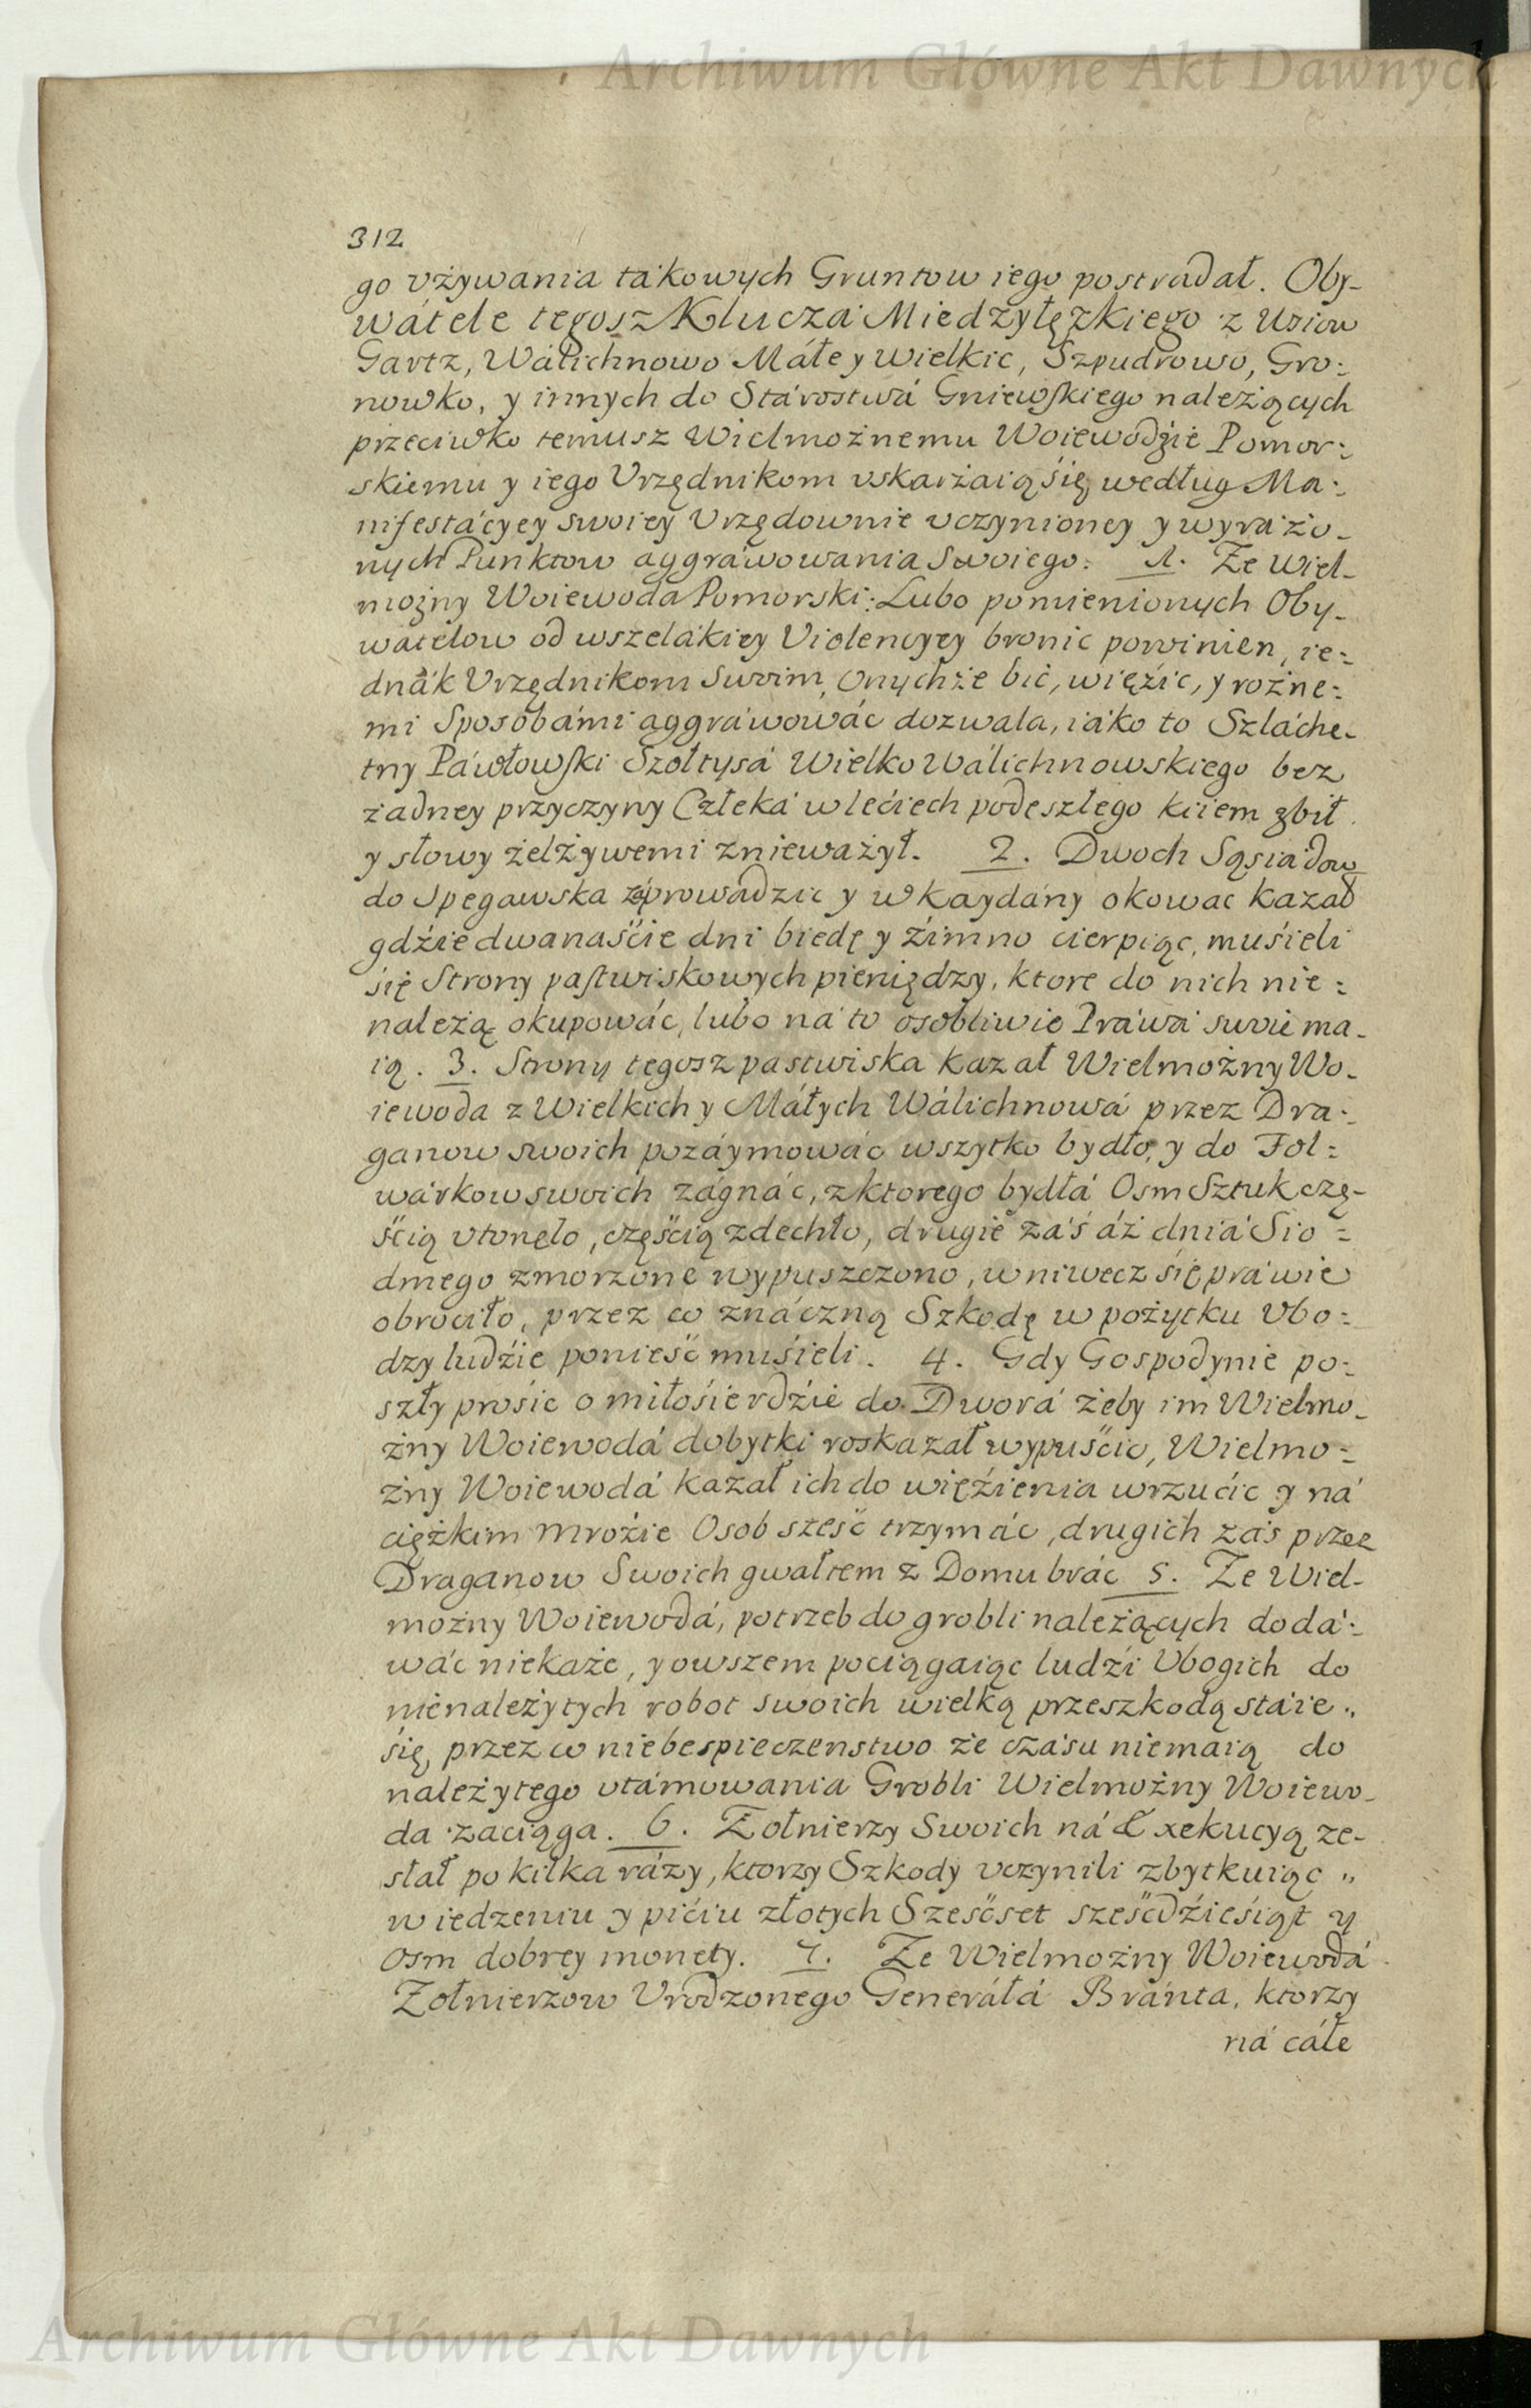 Archiwum Główne Akt Dawnych
312
go vżywania takowych Gruntow iego postradał. Oby-
wátele tegosz Klucza Miedzyłęzkiego z Wsiow
Gartz, Wálichnowo Máłe y wielkie, Szpudrowo, Gro:
nowko, y innych do Stárostwá Gniewskiego należących
przeciwko temusz Wielmożnemu Woiewodźie Pomor:
skiemu y iego Vrzędnikom vskarżaią się, według Ma:
nifestácyey swoiey Vrzędownie vczynioney y wyrażo-
nych Punktow aggráwowania Swoiego: 1. Że Wiel-
możny Woiewoda Pomorski: Lubo pomienionych Oby-
watelow od wszelákiey Violencyey bronic powinien, ie:
dnák Vrzędnikom Swoim, Onychże bić, więźić, y rożne:
mi Sposobámi aggráwowáć dozwala, iáko to Szláche-
tny Páwłowski Szołtysá Wielko Wálichnowskiego bez
żadney przyczyny Człeká w leciech podeszłego kiiem zbił
y słowy żelżywemi znieważył. 2. Dwoch Sąsiadow
do Spegawska záprowadzic y w Kaydány okowac kazał
gdźie dwanaśćie dni biedę y źimno cierpiąc, muśieli
śię Strony pastwiskowych pieniędzy, ktore do nich nie:
należą okupowáć, lubo ná to osobliwie Práwá swoie ma-
ią. 3. Strony tegosz pastwiska kazał Wielmożny Wo-
iewoda z Wielkich y Máłych Wálichnowá przez Dra:
ganow swoich pozáymowáć wszytko bydło, y do Fol:
wárkow swoich zágnáć, z ktorego bydłá Osm Sztuk czę-
śćią vtonęło, częśćią zdechło, drugie záś áż dniá Sio:
dmego zmorzone wypuszczono, w niwecz się práwie
obroćiło, przez co znáczną Szkodę w pożytku Vbo:
dzy ludźie ponieść muśieli. 4. Gdy Gospodynie po:
szły prosic o miłośierdźie do Dworá żeby im Wielmo-
żny Woiewodá dobytki roskazał wypuśćic, Wielmo:
żny Woiewodá kazał ich do więźienia wrzućic y ná
ciężkim mroźie Osob sześć trzymáć, drugich záś przez
Draganow Swoich gwałtem z Domu bráć 5. Że Wiel-
możny Woiewodá, potrzeb do grobli należących dodá:
wáć niekaże, y owszem poćiągaiąc ludźi Vbogich do
nienależytych robot swoich wielką przeszkodą stáie
się, przez co niebespieczenstwo że czásu niemaią do
należytego vtámowania Grobli Wielmożny Woiewo-
da zaciąga. 6. Żołnierzy Swoich ná Exekucyą ze-
słał po kilka rázy, ktorzy Szkody vczynili zbytkuiąc
w iedzeniu y pićiu złotych Sześćset sześćdźieśiąt y
Osm dobrey monety. 7. Że Wielmożny Woiewodá
Żołnierzow Vrodzonego Generáłá Bránta, ktorzy
ná cáłe
Archiwum Główne Akt Dawnych